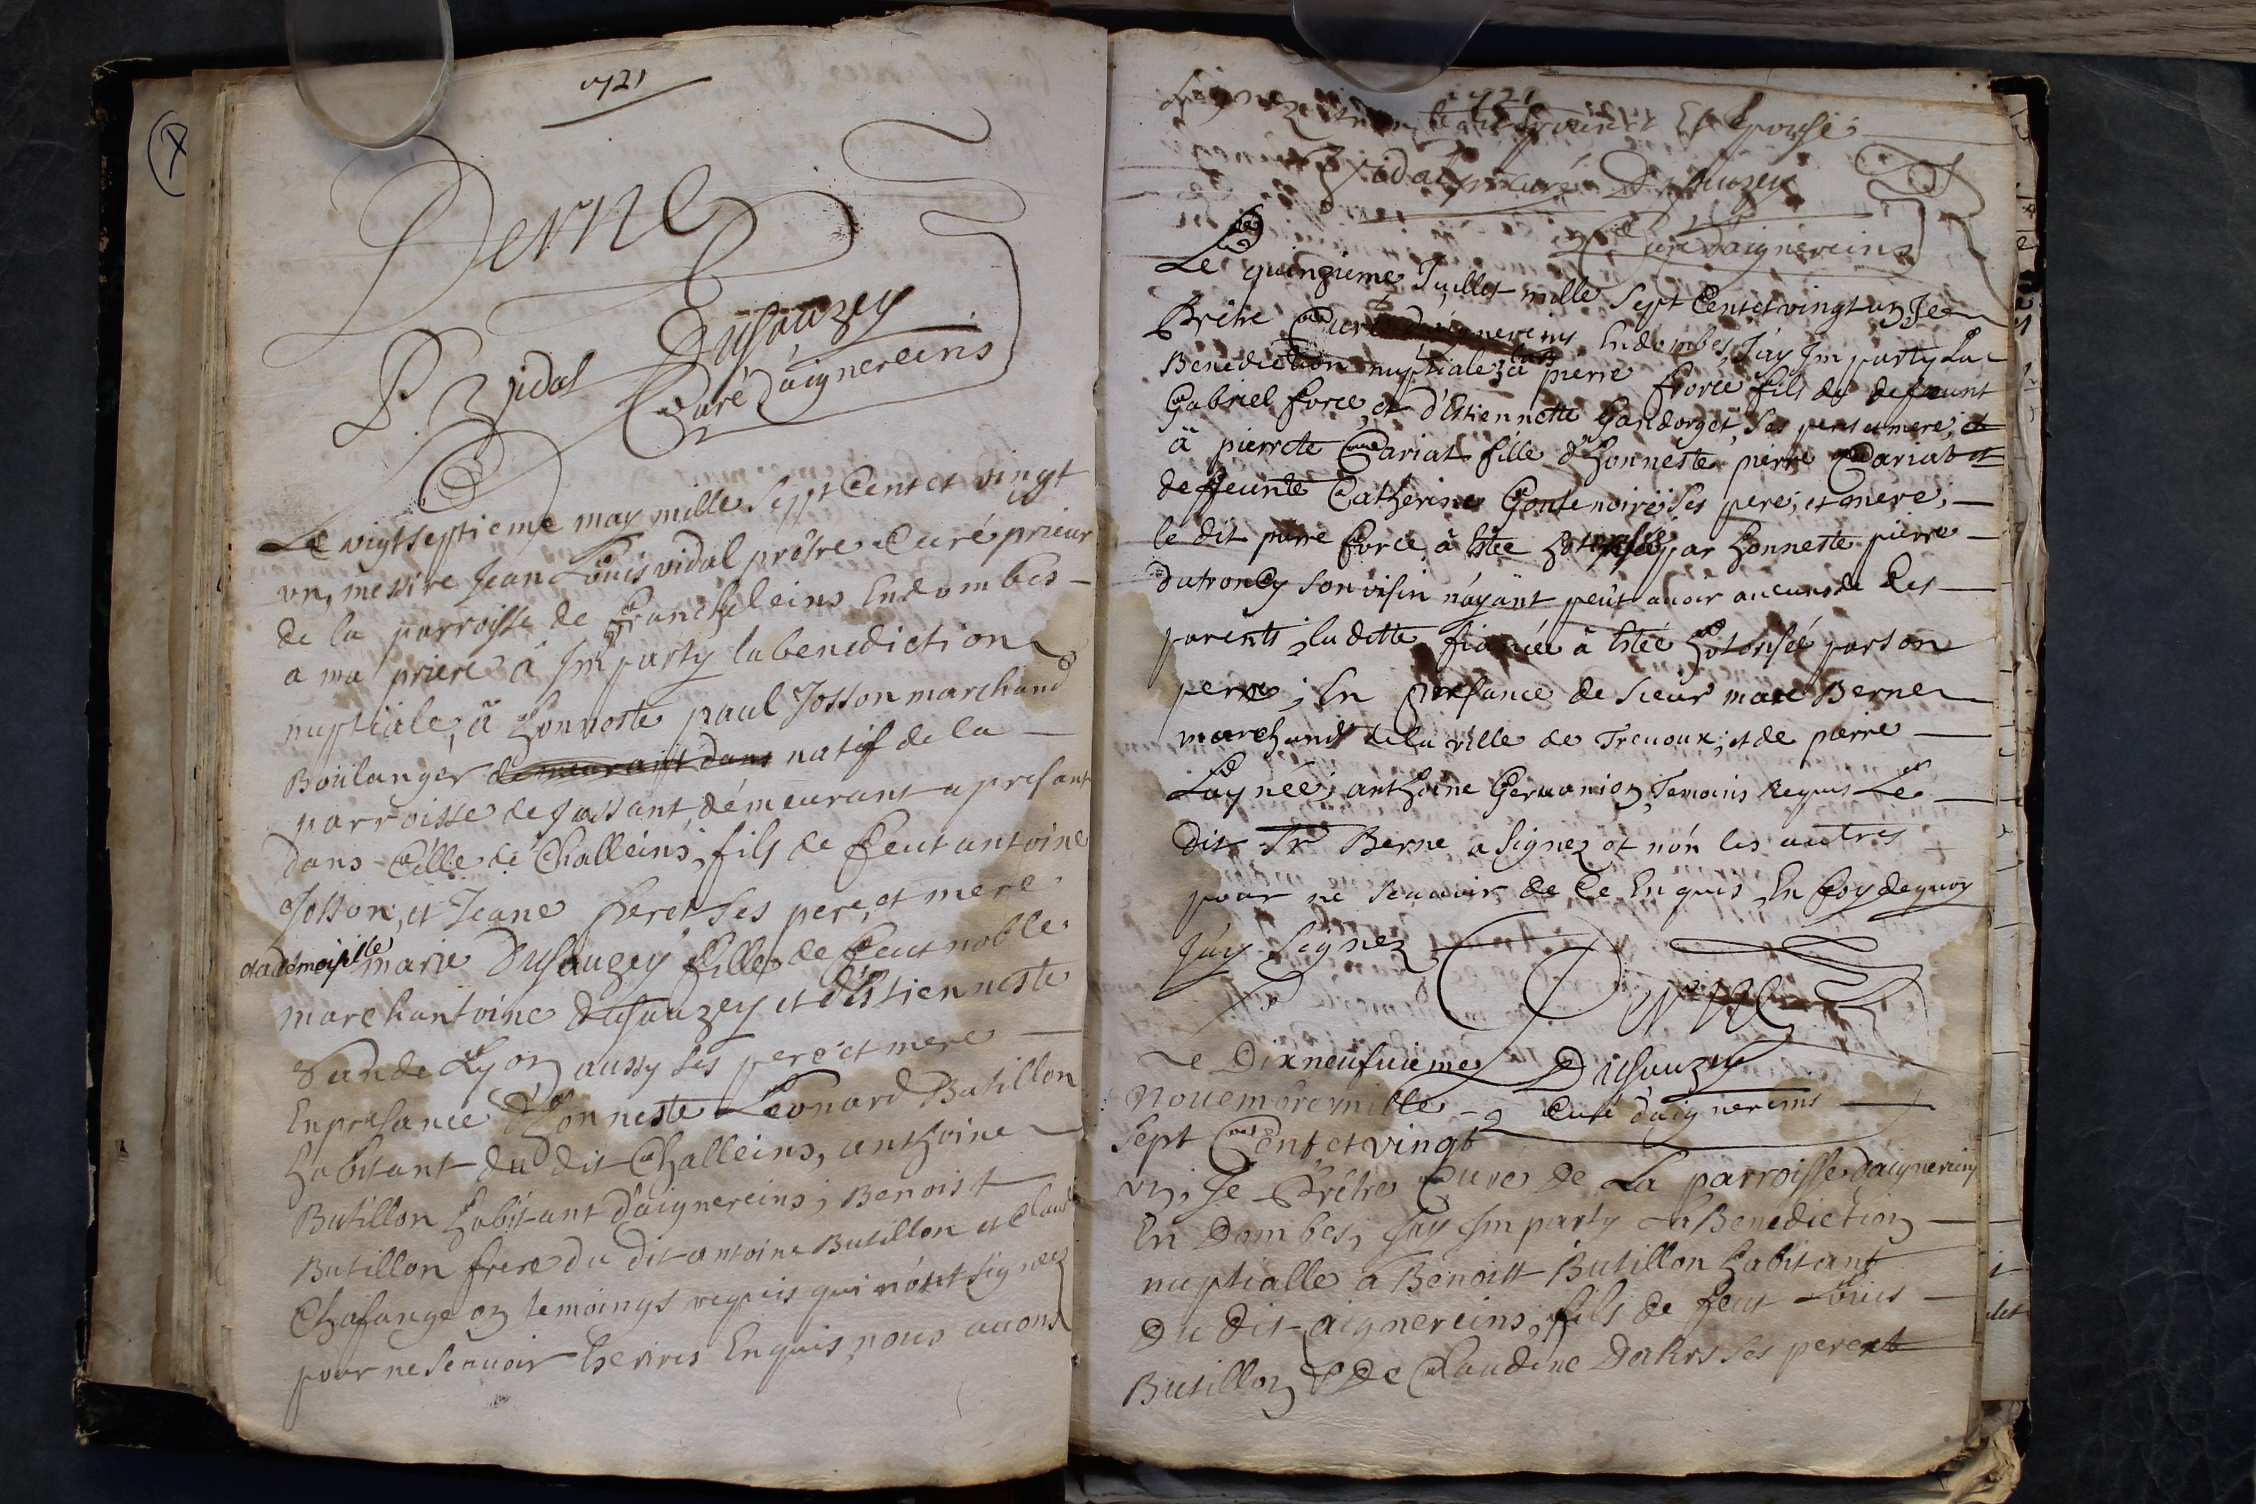 1721
Berne
P. Vidal Dusauzey
Curé d'aignereins
Le vigtseptieme may mille sept Cent et vingt
un, messire Jean Louis vidal prêtre Curé prieur
de la parroisse de francheleins En dombes
a ma priere â Imparty la benediction
nuptiale, â honneste paul Josson marchand
Boulanger demeurant dans natif de la
parroisse de Jassant, démeurant a present
dans Cille de Challeins, fils de feut antoine
Josson, et Jeane feret ses pere, et mere
et a démoiselle marie Dusauzey fille de feut noble
marchantoine Dusauzey et d'Estienneste
de Lyon aussy ses pere et mere
En presance d'honneste Leonard Butillon
habitant du dit Challeins, anthoine
Butillon habitant d'aignereins, Benoist
Butillon frere du dit antoine Butillon et Claud
Chafangeon temoings requis qui n'ont signez
pour ne scauoir Enquis nous auons
X
1721
signez
Vidal Curé Dusauzey
Curé d'aignereins
Le quinzieme Juillet mille sept Cent et vingt un Je
Prêtre Curé d'aignereins En dombes, J'ay Imparty La
Benediction nuptialez â pierre force fils de deffeunt
Gabriel force, et d'Estiennette Gandorget, ses pere et mere, et
â pierrete Cariat fille d'honneste pierre Cariat et
deffeunte Catherine Goutenoire ses pere, et mere,
le dit pierre force, â Estée hotorisé par honneste pierre
dutroncy son visin n'ayant peut auoir aucuns de Ses
parents, la ditte fiancée â Estée hotorisée par son
pere, En presance de Sieur marc Berne
marchand de la ville de Treuoux, et de pierre
Laynée, anthoine Germanion, Temoins Requis Le
dit Sr Berne a signez et nón les autres
pour ne scauoir de Ce Enquis En foy de quoy
J'ay Signez
Berne
Dusauzey
Curé d'aignereins
Le Dixneufuieme
Nouembre mille
Sept Cent et vingt
un, Je Prêtre Curé de La parroisse d'aignereins
En Dombes, J'ay Imparty La Benediction
nuptialle a Benoist Butillon habitant
Du dit aignereins, fils de feut Louis
Butillon & De Claudine ses pere et